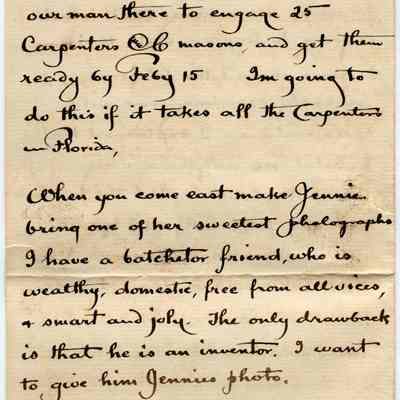 our man there to engage 25
Carpenters & 6 masons, and get them
ready by Feby 15 Im going to
do this if it takes all the Carpenters
in Florida,
When you come east make Jennie
bring one of her sweetest photographs
I have a batchelor friend, who is
wealthy, domestic, free from all vices,
& smart and joly. The only drawback
is that he is an inventor. I want
to give him Jennies photo.